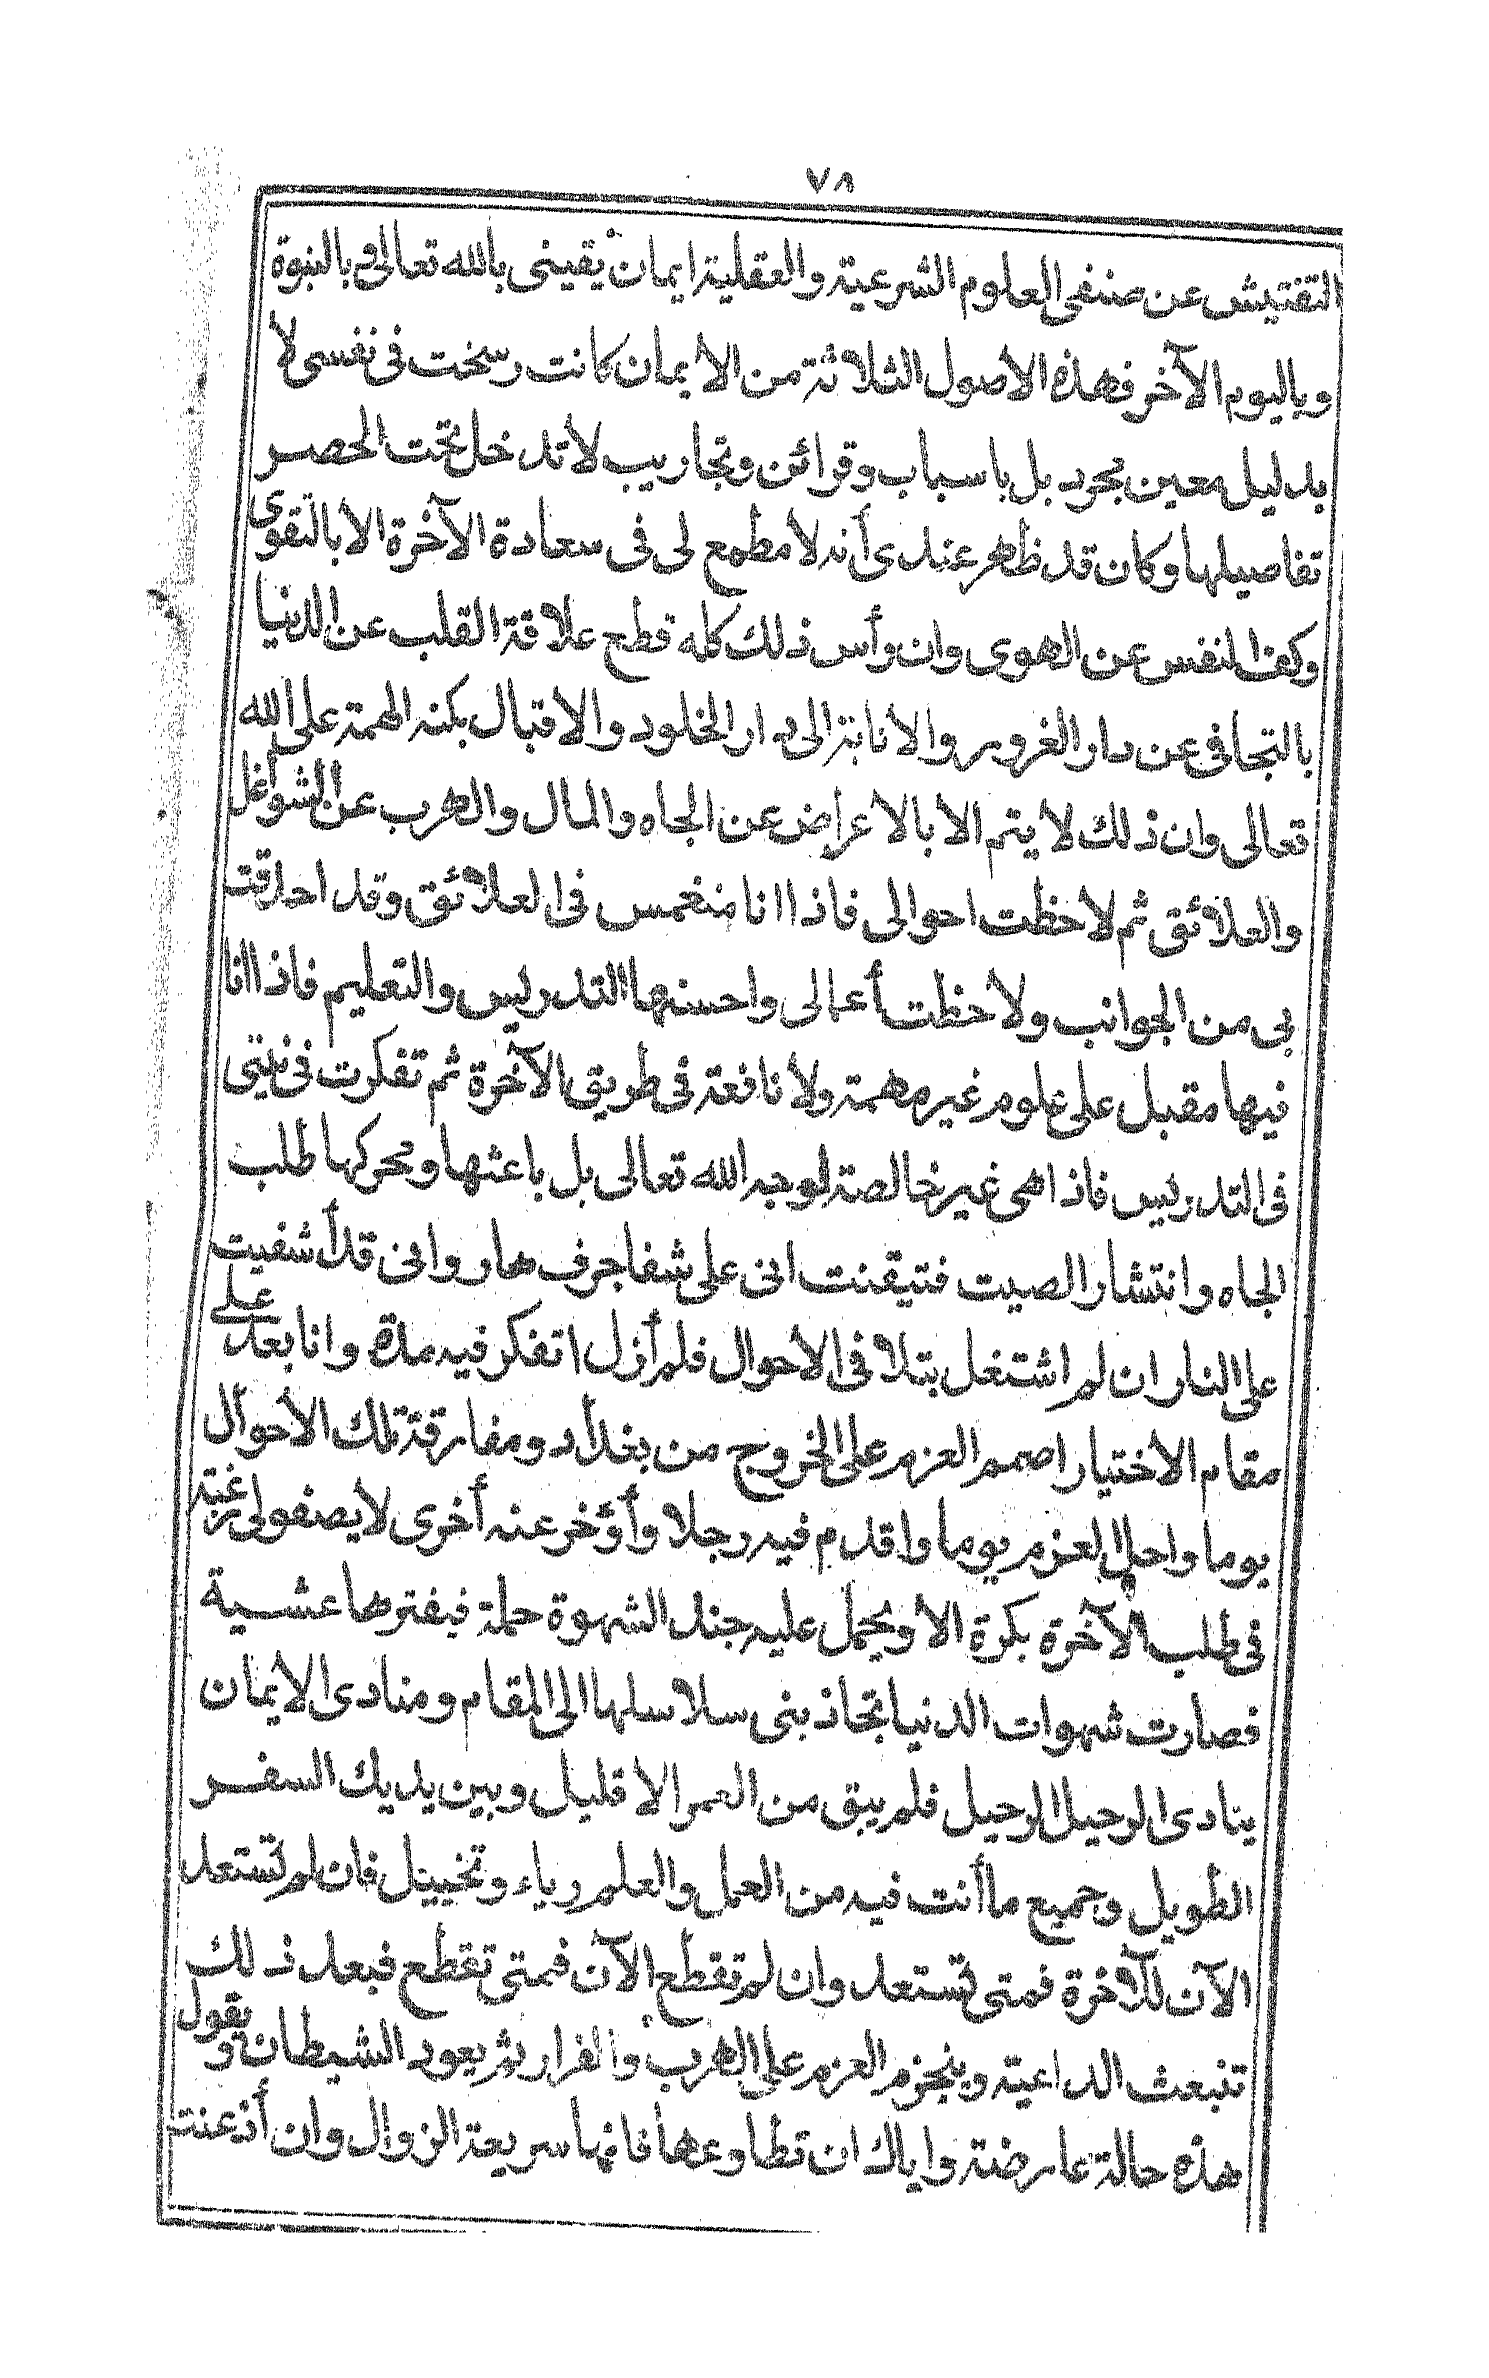 ٧٨
التفتيش عن صنفى العلوم الشرعية والعقلية ايمان يقينى بالله تعالى وبالنبوة
وباليوم الآخر فهذه الأصول الثلاثة من الأيمان كانت رسخت فى نفسى لا
بدليل معين مجرد بل باسباب وقرائن وتجاريب لا تدخل تحت الحصر
تفاصيلها وكان قد ظهر عندى أنه لا مطمع لى فى سعادة الآخرة الا بالتقوى
وكف النفس عن الهوى وان رأس ذلك كله قطع علاقة القلب عن الدنيا
بالتجافى عن دار الغرور والانابة الى دار الخلود والاقبال بكنه الهمة على الله
تعالى وان ذلك لا يتم الا بالاعراض عن الجاه والمال والهرب عن الشواغل
والعلائق ثم لاحظت احوالى فاذا انا منغمس فى العلائق وقد احدقت
بى من الجوانب ولاحظت أعمالى واحسنها التدريس والتعليم فاذا انا
فيها مقبل على علوم غير مهمة ولا نافعة فى طريق الآخرة ثم تفكرت فى نيتى
فى التدريس فاذا هى غير خالصة لوجه الله تعالى بل باعثها ومحركها طلب
الجاه وانتشار الصيت فتيقنت انى على شفا جرف هار وانى قد أشفيت
على النار ان لم اشتغل بتلافى الأحوال فلم أزل اتفكر فيه مدة وانا بعد على
مقام الأختيار اصمم العزم على الخروج من بغداد ومفارقة تلك الأحوال
يوما واحل العزم يوما واقدم فيه رجلا وأؤخر عنه أخرى لا يصفو لى رغبة
فى طلب الآخرة بكرة الا ويحمل عليه جند الشهوة حملة فيفترها عشية
فصارت شهوات الدنيا تجاذبنى سلاسلها الى المقام ومنادى الأيمان
ينادى الرحيل الرحيل فلم يبق من العمر الا قليل وبين يديك السفر
الطويل وجميع ما أنت فيه من العمل والعلم رياء وتخييل فان لم تستعد
الآن للآخرة فمتى تستعد وان لم تقطع الآن فمتى تقطع فبعد ذلك
تنبعث الداعية وينجزم العزم على الهرب والفرار ثم يعود الشيطان ويقول
هذه حالة عارضة واياك ان تطاوعها فانها سريعة الزوال وان أذعنت